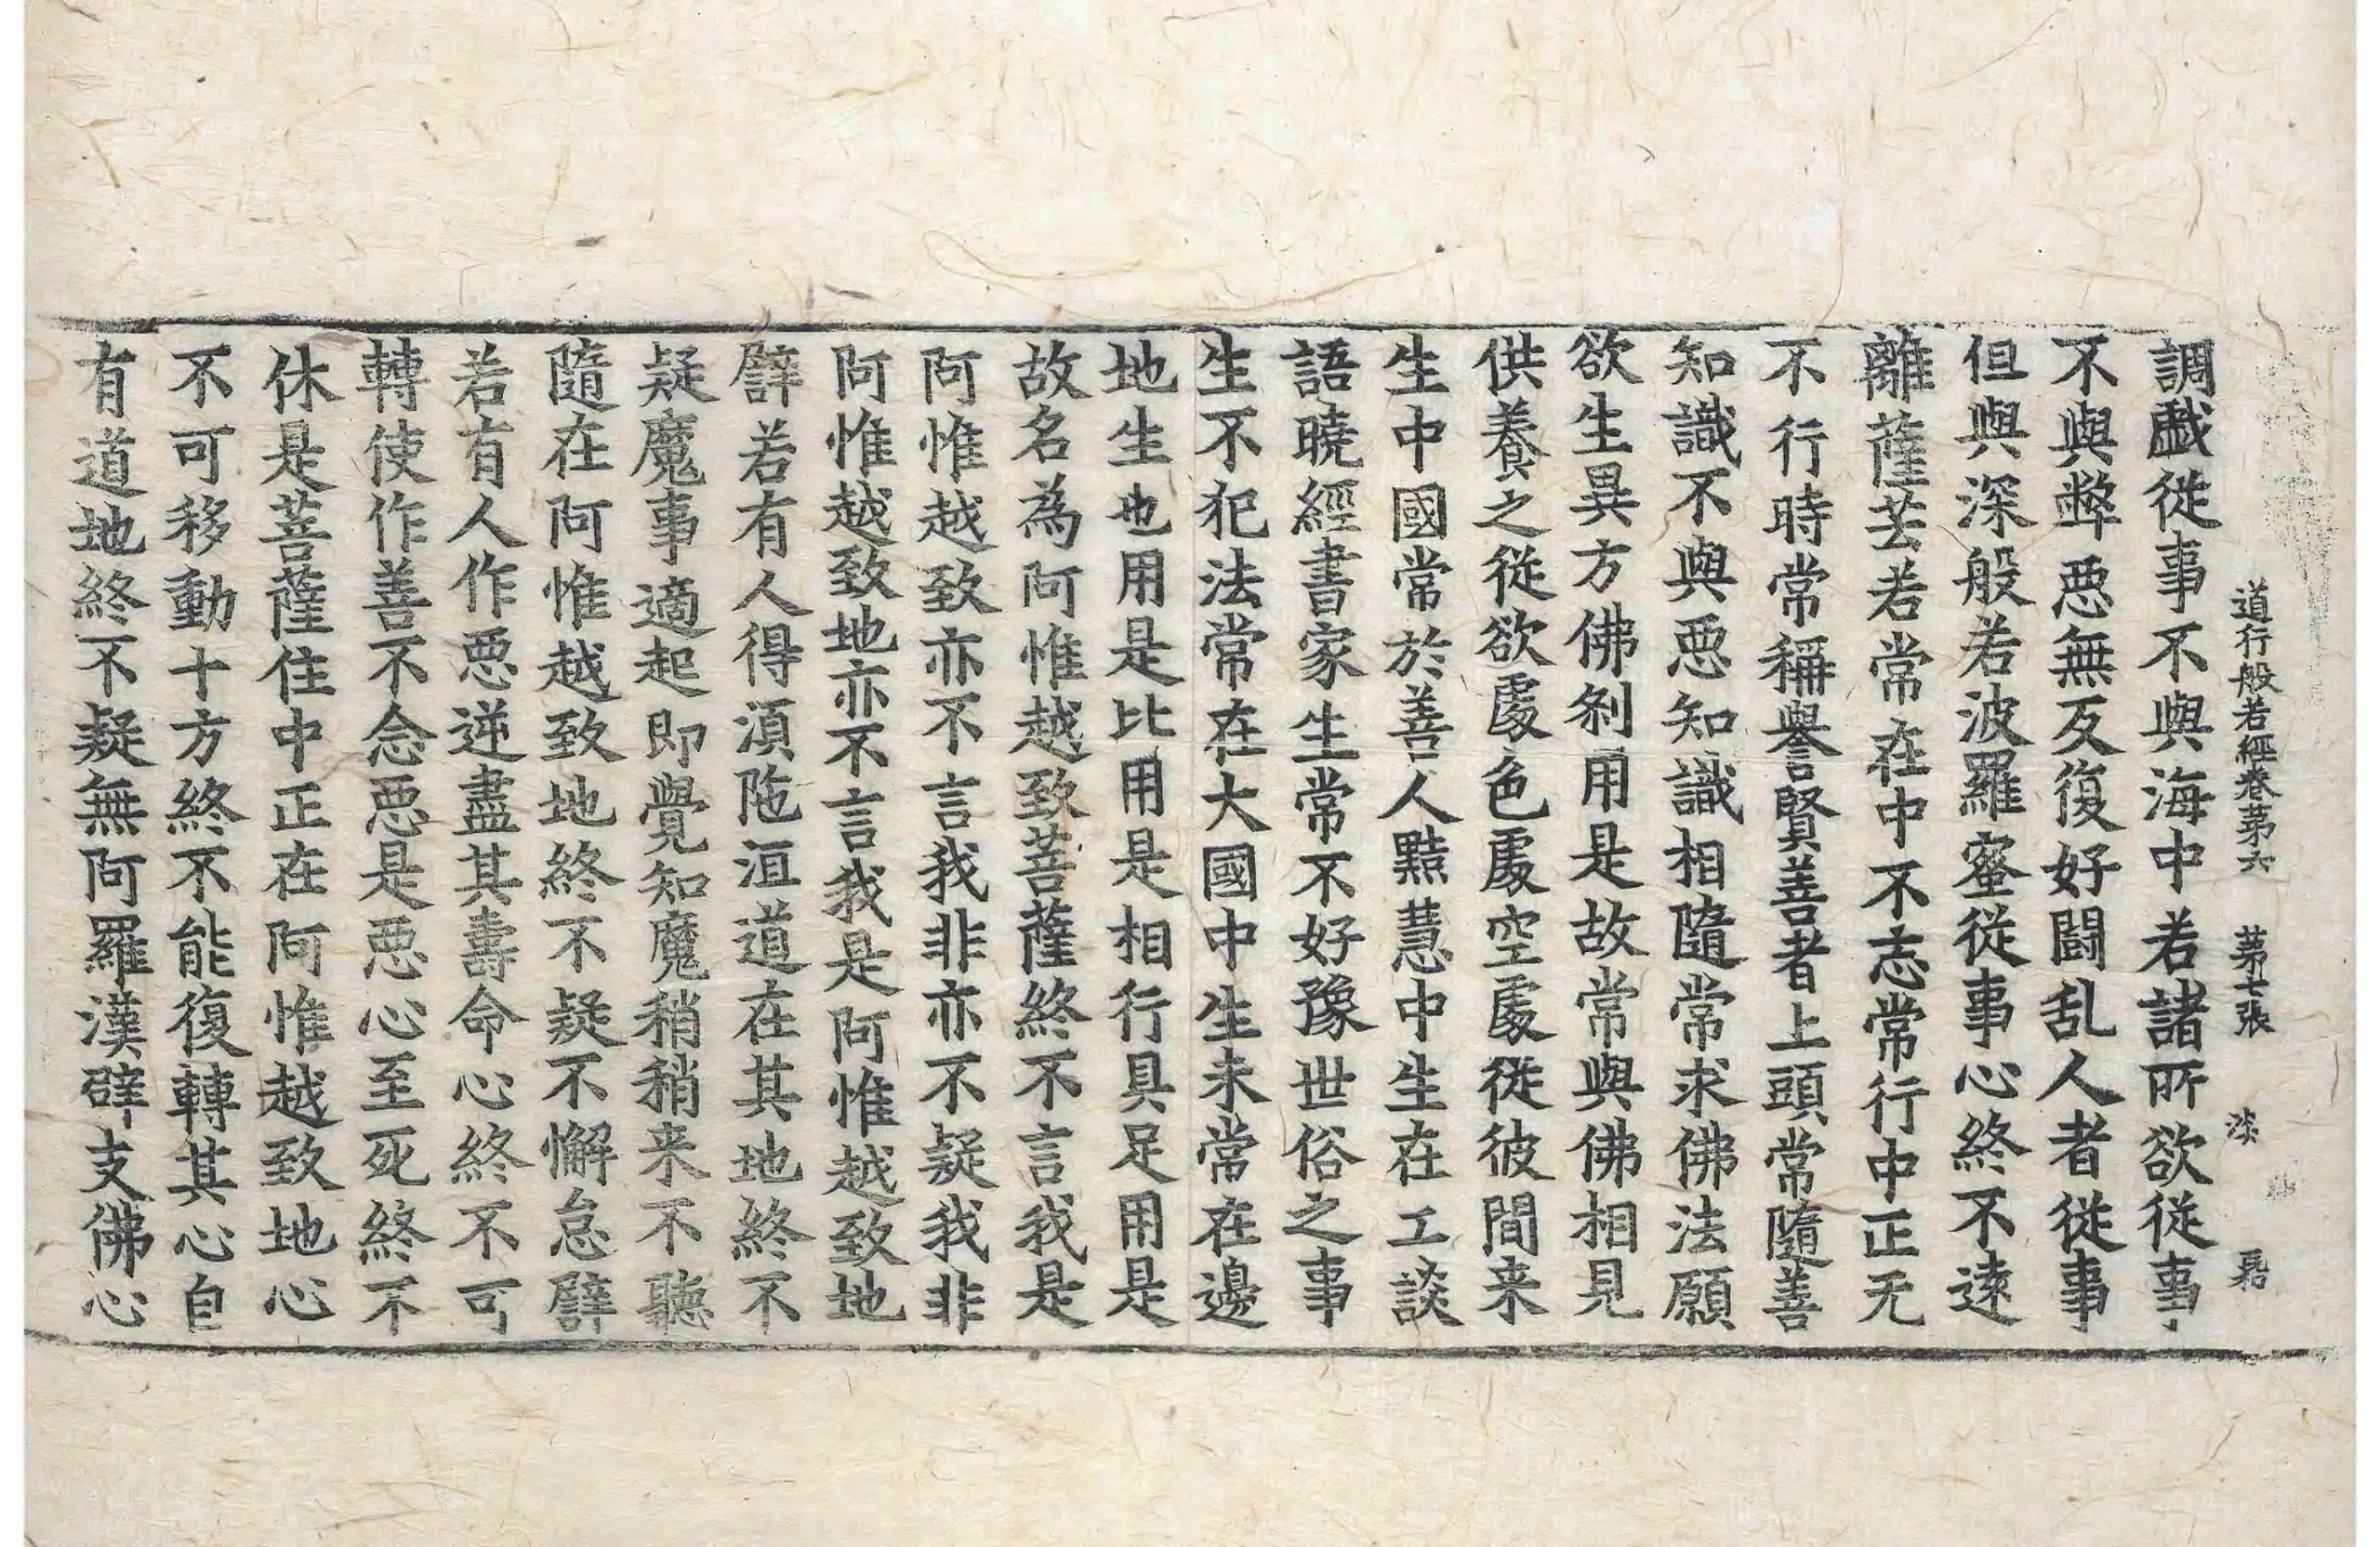 道行般若經卷第六 第七張 羽
調戱從事不與海中若諸所欲從事
不與弊惡無反復好鬪乱人者從事
但與深般若波羅蜜從事心終不遠
離薩芸若常在中不志常行中正无
不行時常稱譽賢善者上頭常隨善
知識不與惡知識相隨常求佛法願
欲生異方佛刹用是故常與佛相見
供養之從欲處色處空處從彼間来
生中國常於善人黠慧中生在工談
語曉經書家生常不好豫世俗之事
生不犯法常在大國中生未常在邊
地生也用是比用是相行具足用是
故名為阿惟越致菩薩終不言我是
阿惟越致亦不言我非亦不疑我非
阿惟越致地亦不言我是阿惟越致地
譬若有人得湏陁洹道在其地終不
疑魔事適起即覺知魔稍稍来不聽
隨在阿惟越致地終不疑不懈怠譬
若有人作惡逆盡其壽命心終不可
轉使作善不念惡是惡心至死終不
休是菩薩住中正在阿惟越致地心
不可移動十方終不能復轉其心自
有道地終不疑無阿羅漢辟支佛心